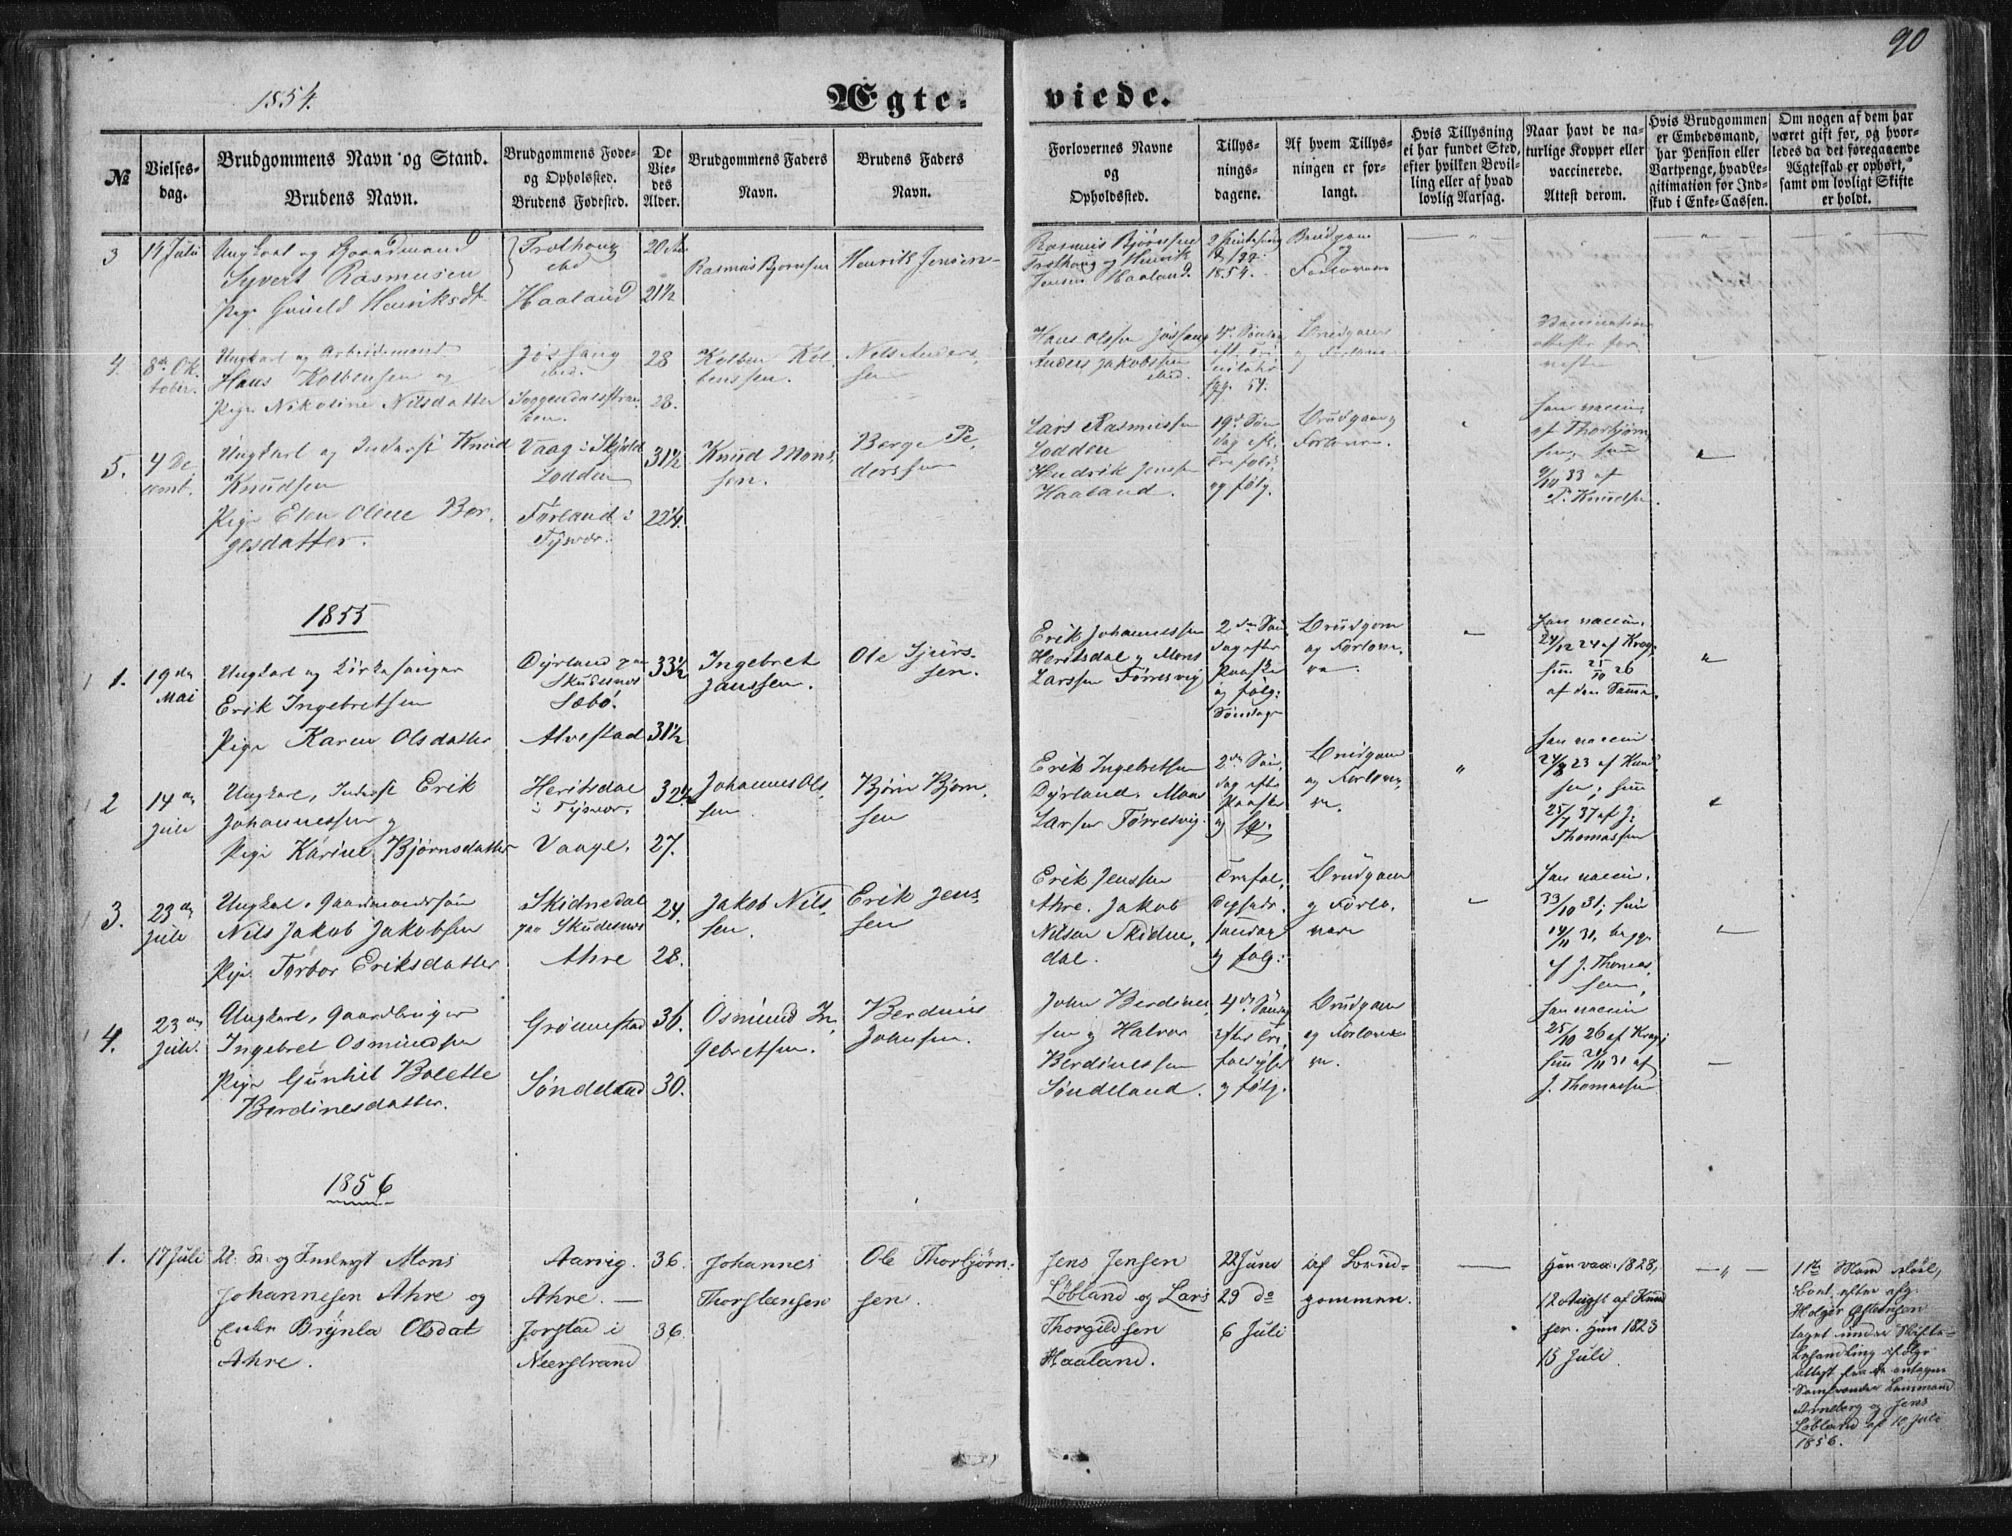 90
1854.
Ægte-
viede.
№
Vielses-
dag.
Brudgommens Navn og Stand.
Brudens Navn.
Brudgommens Føde-
og Opholdssted.
Brudens Fødested.
De
Vie-
des
Alder.
Brudgommens Faders
Navn.
Brudens Faders
Navn.
Forlovernes Navne
og
Opholdssted.
Tillys-
nings-
dagene.
Af hvem Tillys-
ningen er for-
langt.
Hvis Tillysning
ei har fundet Sted,
efter hvilken Bevil-
ling eller af hvad
lovlig Aarsag.
Naar havt de na-
turlige Kopper eller
vaccinerede.
Attest derom.
Hvis Brudgommen
er Embedsmand,
har Pension eller
Vartpenge, hvad Le-
gitimation for Ind-
skud i Enke-Cassen.
Om nogen af dem har
været gift før, og hvor-
ledes da det foregaaende
Ægteskab er ophørt,
samt om lovligt Skifte
er holdt.
3
14 Juli
Ungkarl og Gaardmand
Syvert Rasmusen
Pige Gunild Henriksdt
Frølhoug
ibid
Haaland
20
21½
Rasmus Bjørnsen
Henrik Jensen
Rasmus Bjørnsen
Frølhoug og Henrik
Jensen Haaland
1854.
Brudgom
og
Forlovere
4.
8de Ok-
tober.
Ungkarl og Arbeidsmand
Hans Kolbensen og
Pige Nikoline Nilsdatter
Jøsfang
ibid.
Soggendalsstran-
den.
28
28.
Kolben Kol-
benssen.
Nils Anders-
sen
Hans Olsen Jøsfang
Anders Jakobssen
ibid.
4de Søndag
54.
Brudgom
og Forlover
Vaccinations
attester for-
viste
5.
4 De-
cembr.
Ungkarl og Inderst Knud
Knudsen
Pige Elen Oline Bør-
gesdatter.
Vaag i Skjold
Lodden
Førland i
Tysvær.
31½
22¼.
Knud Mons-
sen.
Børge Pe-
derssen
Lars Rasmussen
Lodden
Hendrik Jenssen
Haaland.
19de Søn-
dag eft.
Trefold.
og følg.
Brudgom og
Forlovere.
han vaccin.
af Thorbjørn-
sen, hun
9/10 33 af
P. Knudsen
1855
1.
19de
Mai
Ungkarl og Kirkesanger
Erik Ingebretsen
Pige Karen Olsdatter
Dyrland paa
Skudesnes
Sæbø.
Alvestad
33½
31½
Ingebret
Janssen.
Ole Sjurs-
sen.
Erik Johannessen
Heritsdal og Mons
Larssen Førresvig
2den Søn-
dag efter
Paaske
og følg:
Søndage
Brudgom
og Forlove-
re.
han vaccin.
24/12 24 af Krog,
hun 25/10 26
af den Samme.
2
14de
Juli
Ungkarl, Inderst Erik
Johannessen og
Pige Karine Bjørnsdatter
Heritsdal
i Tysvær.
Vaage.
32½
27.
Johannes Ols-
sen.
Bjørn Bjørn-
sen
Erik Ingebretsen
Dyrland. Mons
Larsen Førresvig.
2den Søn-
dag eft.
Paaske
og følg.
Brudgom
og Forlove-
re.
han vaccin.
24/8 23 af Knud-
sen; hun
25/7 37 af J.
Thomassen
3.
23de
Juli
Ungkarl, Gaardmandssøn
Nils Jakob Jakobsen
Pige Torbor Eriksdatter
Skidnedal
paa Skudesnes
Ahre
24.
28.
Jakob Nils-
sen.
Erik Jens-
sen
Erik Jenssen
Ahre. Jakob
Nilsen Skidne-
dal.
Søndag
og følg:
Brudgom
og Forlo-
vere
han vaccin.
31; hun
14/11 31, begge
af J. Thomas-
sen.
4.
23de
Juli.
Ungkarl, Gaardbruger
Ingebret Osmundsen
Pige Gunhil Bolette
Berdinesdatter.
Grønnestad
Søndeland
36.
30.
Osmund In-
gebretsen.
Berdines
Johnsen.
John Berdines-
sen og Halvor
Berdinessen
Søndeland.
4de Søndag
efter Tre-
foldighed
og følg.
Brudgom
og Forlove-
re.
han vaccin
25/10 26 af Krog;
hun 21/11 31 af
J. Thomassen
1856
1.
17 Juli
U. K. og Inderst Mons
Johannesen Ahre og
Enke Brynla Olsdat
Ahre.
Aarvig.
Ahre. —
Jorstad i
Neerstrand
36.
36.
Johannes
Thorsteensen
Ole Thorbjørn-
sen.
Jens Jensen
Løbland og Lars
Thorgildsen
Haaland.
22 Juni
29 do
6 Juli
af Brud-
gommen.
Han vacc. 1828,
12 August af Knud
sen. Hun 1823
15 Juli.
1ste Mand død,
Boet efter afg.
Holger Østensen
taget under Skifte-
behandling ifølge
Attest fra de antagne
Samfrænder Lensmand
Arneberg og Jens
Løbland af 10 Juli
1856.